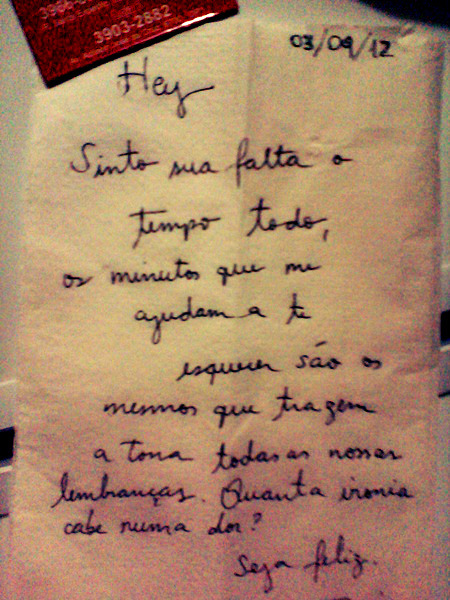 3903-2882
03/09/12
Hey
Sinto sua falta o
tempo todo,
os minutos que me
ajudam a te
esquecer são os
mesmos que trazem
a tona todas as nossas
lembranças. Quanta ironia
cabe numa dor?
Seja feliz.